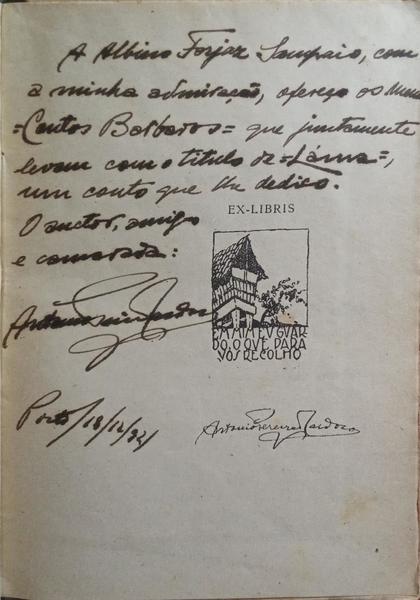 A Albino Forjaz Sampaio, com
a minha admiração, ofereço os meus
=Contos Barbaros= que juntamente
levam com o titulo de =Láma=,
um conto que lhe dedico.
O auctor, amigo
e camarada:
EX-LIBRIS
Antonio Pereira Cardoso
EM MIM EU GUAR
DO, O QUE PARA
VOS RECOLHO
Porto/18/12/
Antonio Pereira Cardoso